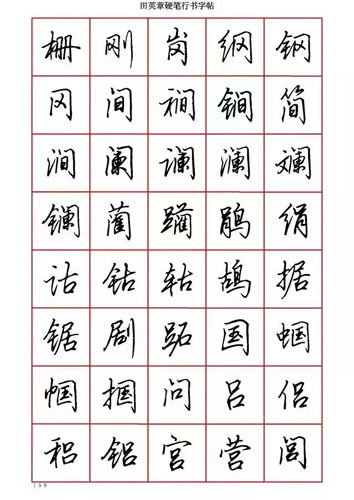 田英章硬笔行书字帖
栅刚岗纲钢
冈间裥锏简
涧阑谰澜斓
镧蔺躏鹃绢
诂钴轱鸪据
锯剧跖国蝈
帼掴问吕侣
稆铝宫营闾